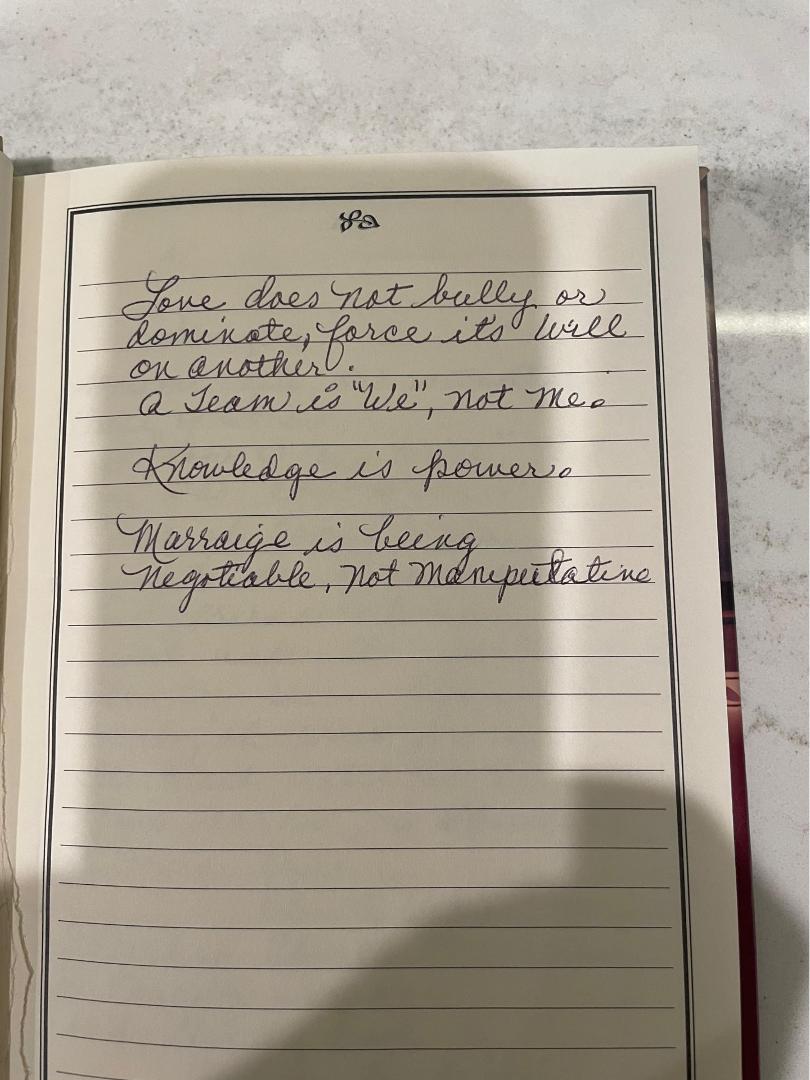 Love does not bully or
dominate, force it's will
on another.
A Team is "We", not me.
Knowledge is power.
Marraige is being
negotiable, not manipulative